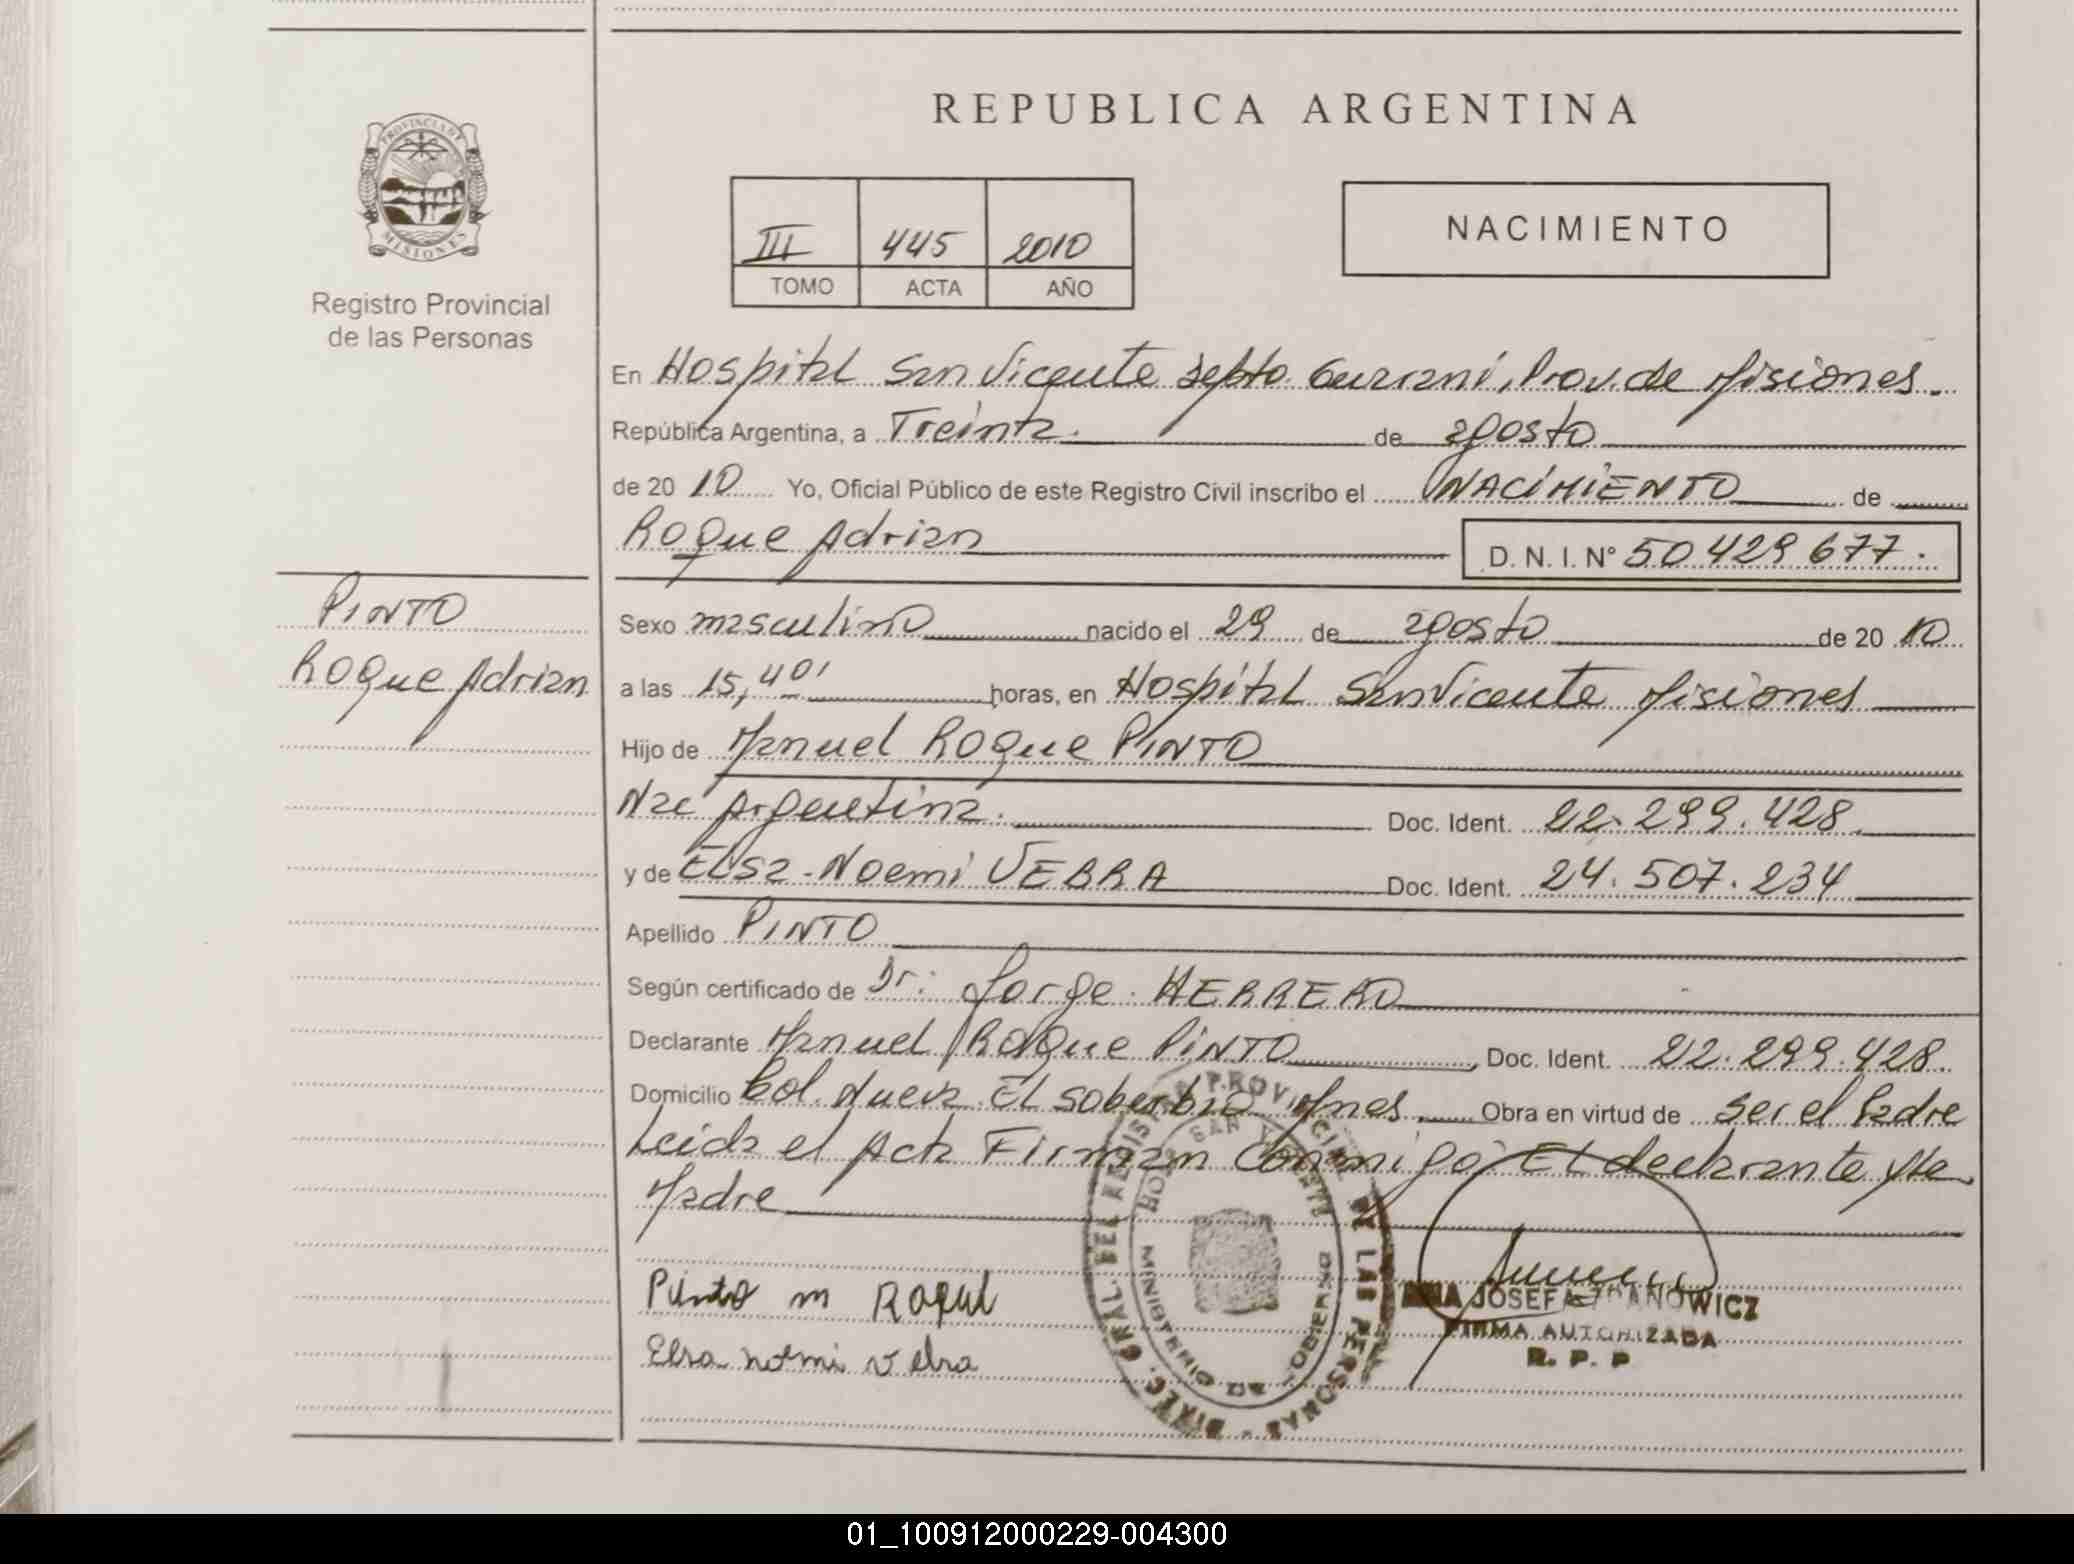 REPUBLICA ARGENTINA
PROVINCIA DE
MISIONES
Registro Provincial
de las Personas
III 445 2010
TOMO ACTA AÑO
NACIMIENTO
En Hospital San Vicente Depto. Guarani, Prov. de Misiones
República Argentina, a Treinta. de agosto
de 20 10 Yo, Oficial Público de este Registro Civil inscribo el NACIMIENTO de
Roque Adrian D. N. I. N° 50 429 677.
PINTO
Roque Adrian
Sexo masculino nacido el 29 de agosto de 20 10
a las 15,40' horas, en Hospital San Vicente Misiones
Hijo de Manuel Roque PINTO
Nac Argentina. Doc. Ident. 22.299.428.
y de Elsa Noemi VEBRA Doc. Ident. 24.507.234
Apellido PINTO
Según certificado de Dr. Jorge HERRERO
Declarante Manuel Roque PINTO Doc. Ident. 22.299.428.
Domicilio Col. Nueva El Soberbio Mnes. Obra en virtud de ser el Padre
Leida el Acta Firman Conmigo El declarante y la
Madre
Pinto m Roque
Elsa noemi vebra
DIREC. GRAL. DEL REGISTRO PROVINCIAL DE LAS PERSONAS
MINISTERIO DE GOBIERNO
JOSEFA
FIRMA AUTORIZADA
R. P. P
01_100912000229-004300